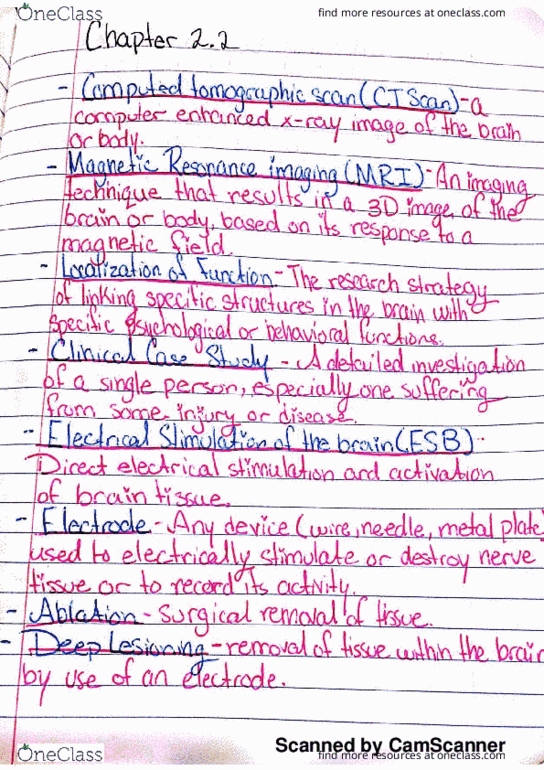 OneClass
find more resources at oneclass.com
Chapter 2.2
- Computed tomographic scan (CT Scan) - a
computer enhanced x-ray image of the brain
or body.
- Magnetic Resonance imaging (MRI) - An imaging
technique that results in a 3D image of the
brain or body, based on its response to a
magnetic field.
- Localization of Function - The research strategy
of linking specific structures in the brain with
specific psychological or behavioral functions.
- Clinical Case Study - A detailed investigation
of a single person, especially one suffering
from some injury or disease.
- Electrical Stimulation of the brain (ESB) -
Direct electrical stimulation and activation
of brain tissue.
- Electrode - Any device (wire, needle, metal plate)
used to electrically stimulate or destroy nerve
tissue or to record its activity.
- Ablation - Surgical removal of tissue.
- Deep Lesioning - removal of tissue within the brain
by use of an electrode.
Scanned by CamScanner
OneClass
find more resources at oneclass.com